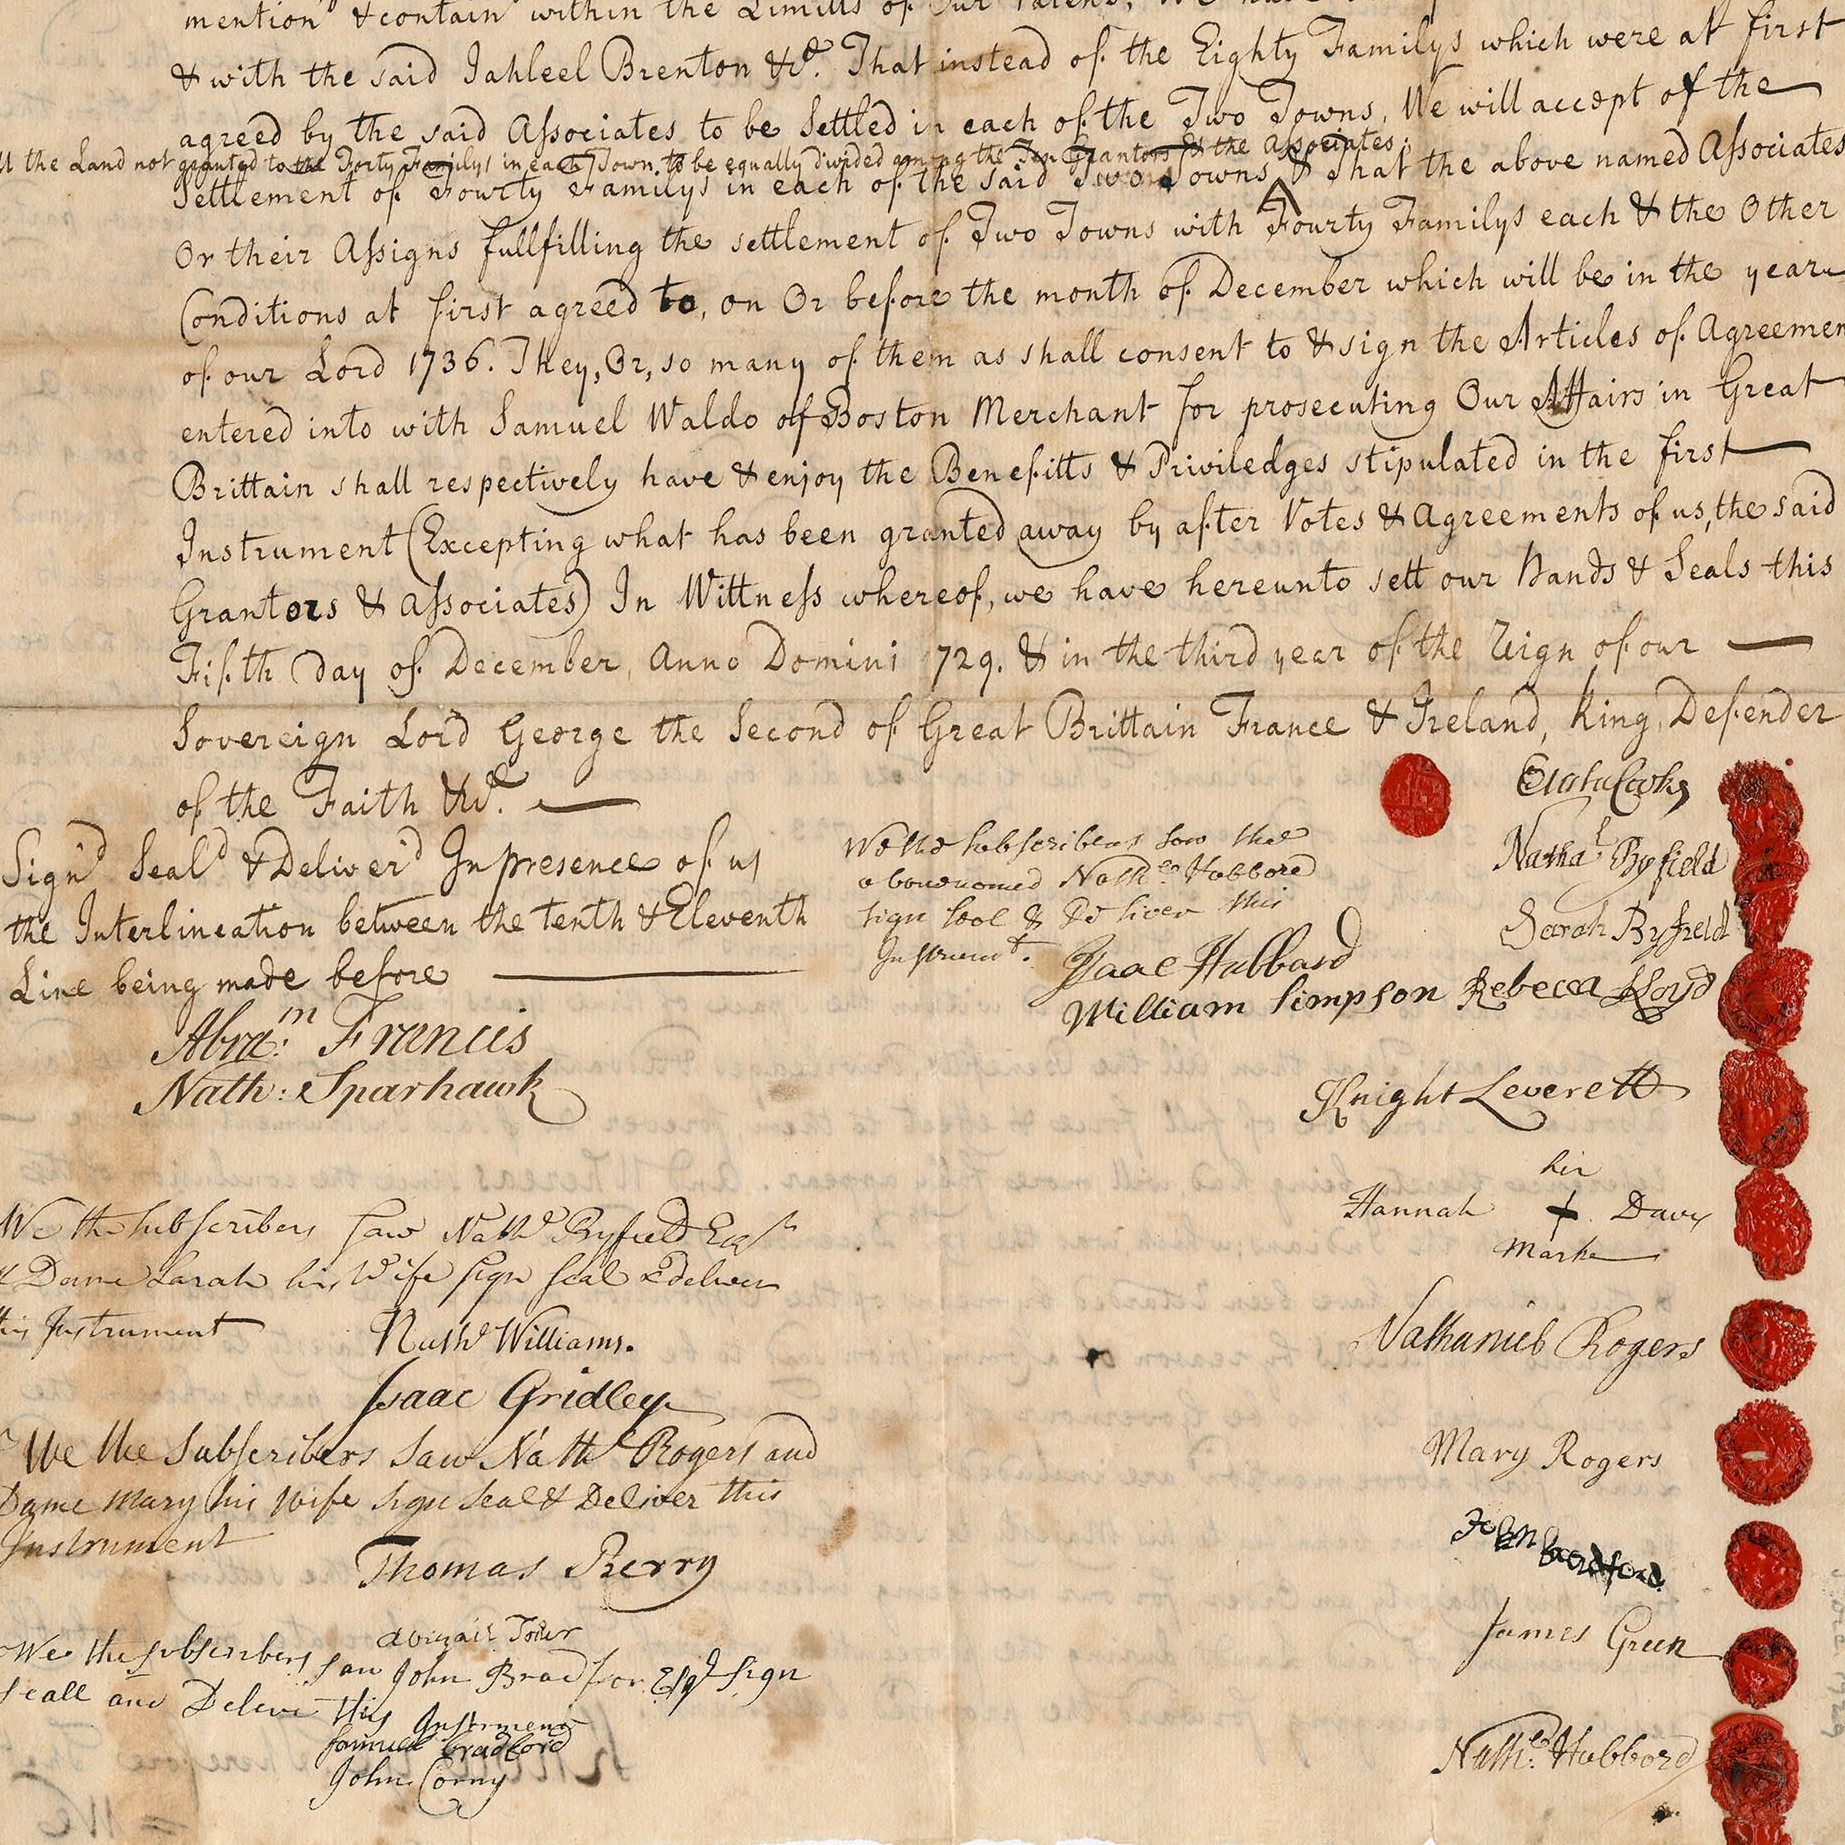 mention'd & contain within the Limitts of Our Patent, We have
& with the said Jahleel Brenton &c. That instead of the Eighty Familys which were at first
agreed by the said Associates to be Settled in each of the Two Towns, We will accept of the
the Land not granted to the Forty Familys in each Town, to be equally divided among the Ten Grantors & the Associates;
Settlement of Fourty Familys in each of the said Two Towns ^ & That the above named Associates
Or their Assigns fullfilling the settlement of Two Towns with Fourty Familys each & the Other
Conditions at first agreed to, on Or before the month of December which will be in the year
of our Lord 1736. They, Or, so many of them as shall consent to & sign the Articles of Agreemen
entered into with Samuel Waldo of Boston Merchant for prosecuting Our Affairs in Great
Brittain shall respectively have & enjoy the Benefitts & Priviledges stipulated in the first
Instrument (Excepting what has been granted away by after Votes & Agreements of us, the said
Grantors & Associates) In Wittness whereof, we have hereunto sett our Hands & Seals this
Fifth day of December, Anno Domini 1729. & in the third year of the Reign of our
Sovereign Lord George the Second of Great Brittain France & Ireland, King, Defender
of the Faith &c.
Elisha Cooke
Sign'd Seal'd & Deliver'd In presence of us
the Interlineation between the tenth & Eleventh
Line being made before
Abram: Francis
Nath: Sparhawk
We the subscribers saw the
abovenamed Nathll Hubbord
sign seal & Deliver this
Instrumt.
Isaac Hubbard
William Simpson
Nathal Byfield
Sarah Byfield
Rebecca Lloyd
Knight Leverett
her
Hannah + Davis
Marke
We the subscribers saw Nathl Byfield Esqr
& Dame Sarah his Wife sign seal & deliver
this Instrument
Nathl Williams.
Isaac Gridley
Nathaniel Rogers
We the Subscribers saw Nathl Rogers and
Dame Mary his Wife sign seal & Deliver this
Instrument
Thomas Berry
Mary Rogers
John Bradford
James Green
We the subscribers saw John Bradfor Esqr sign
seall and Deliver this Instrment
Samuel Bradford
John Corny
Nathll Hubbord